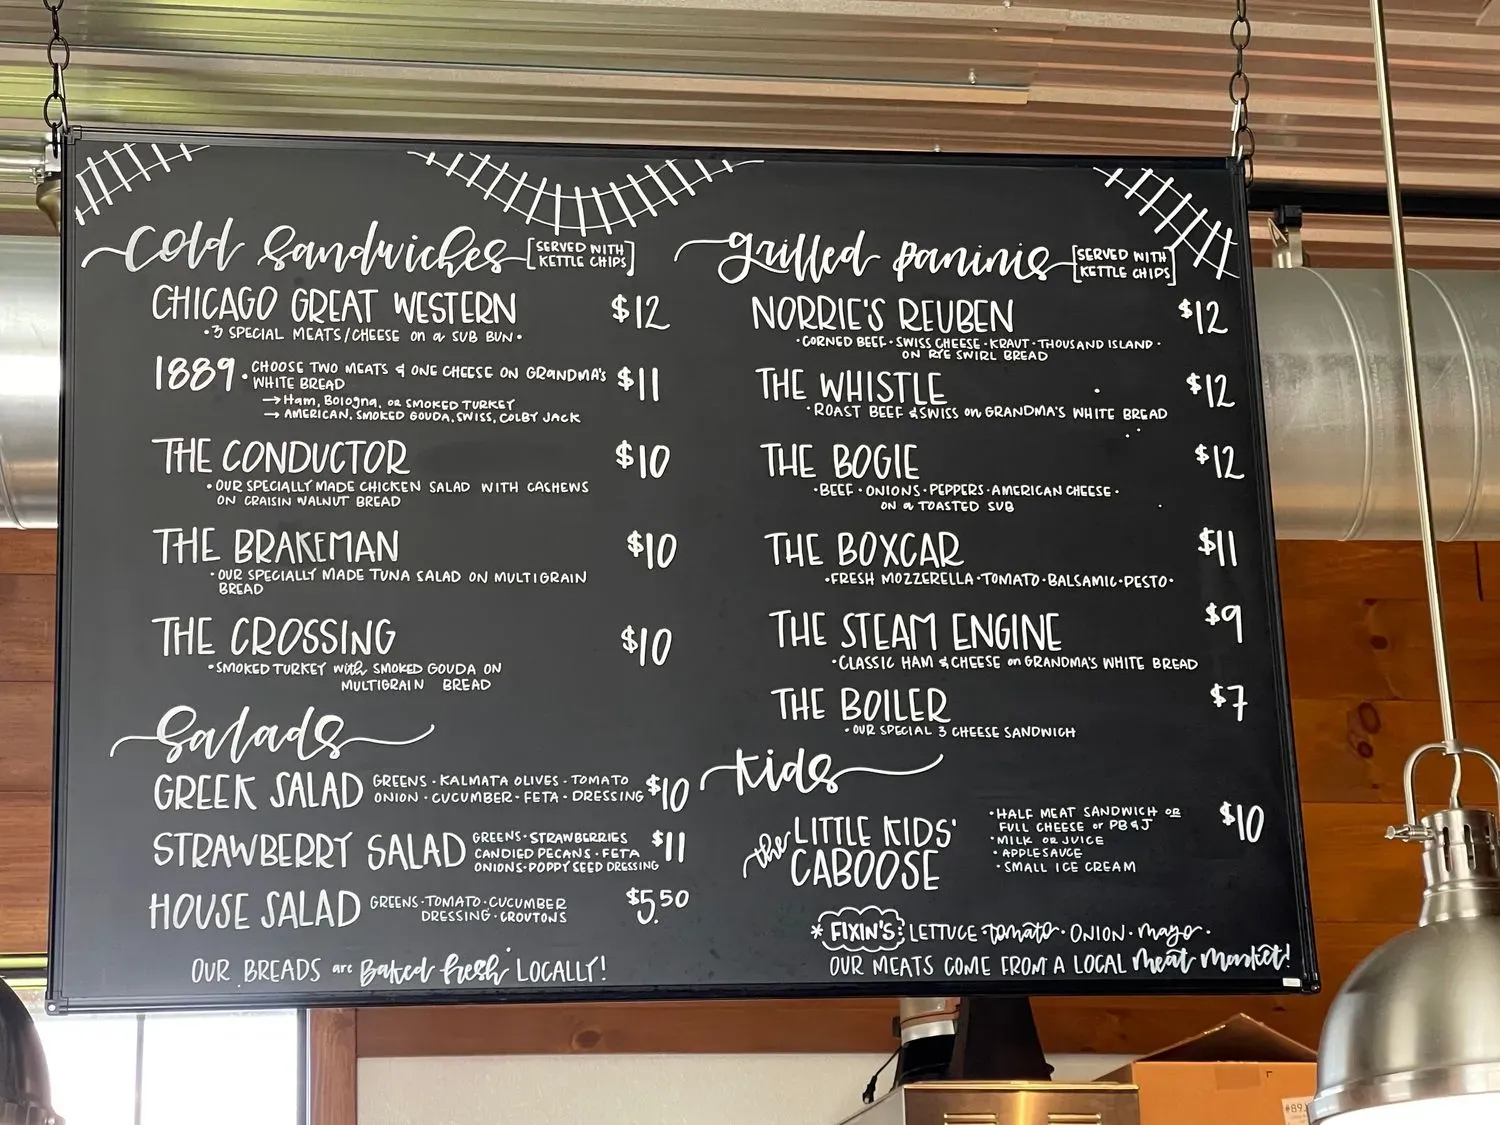 Cold Sandwiches [SERVED WITH
KETTLE CHIPS]
CHICAGO GREAT WESTERN $12
•3 SPECIAL MEATS/CHEESE on a SUB BUN•
1889 • CHOOSE TWO MEATS & ONE CHEESE ON GRANDMA'S $11
WHITE BREAD
→ Ham, Bologna, OR SMOKED TURKEY
→ AMERICAN, SMOKED GOUDA, SWISS, COLBY JACK
THE CONDUCTOR $10
•OUR SPECIALLY MADE CHICKEN SALAD WITH CASHEWS
ON CRAISIN WALNUT BREAD
THE BRAKEMAN $10
•OUR SPECIALLY MADE TUNA SALAD ON MULTIGRAIN
BREAD
THE CROSSING $10
•SMOKED TURKEY with SMOKED GOUDA ON
MULTIGRAIN BREAD
Salads
GREEK SALAD GREENS • KALMATA OLIVES • TOMATO $10
ONION • CUCUMBER • FETA • DRESSING
STRAWBERRY SALAD GREENS • STRAWBERRIES $11
CANDIED PECANS • FETA
ONIONS • POPPY SEED DRESSING
HOUSE SALAD GREENS • TOMATO • CUCUMBER $5.50
DRESSING • CROUTONS
OUR BREADS are Baked fresh LOCALLY!
grilled paninis [SERVED WITH
KETTLE CHIPS]
NORRIE'S REUBEN $12
•CORNED BEEF • SWISS CHEESE • KRAUT • THOUSAND ISLAND •
ON RYE SWIRL BREAD
THE WHISTLE $12
•ROAST BEEF & SWISS on GRANDMA'S WHITE BREAD
THE BOGIE $12
•BEEF • ONIONS • PEPPERS • AMERICAN CHEESE •
ON a TOASTED SUB
THE BOXCAR $11
•FRESH MOZZERELLA • TOMATO • BALSAMIC • PESTO•
THE STEAM ENGINE $9
•CLASSIC HAM & CHEESE on GRANDMA'S WHITE BREAD
THE BOILER $7
•OUR SPECIAL 3 CHEESE SANDWICH
Kids
the LITTLE KIDS' CABOOSE $10
•HALF MEAT SANDWICH OR
FULL CHEESE or PB&J
•MILK OR JUICE
•APPLESAUCE
•SMALL ICE CREAM
* FIXIN'S: LETTUCE • tomato • ONION • mayo •
OUR MEATS COME FROM A LOCAL meat market!